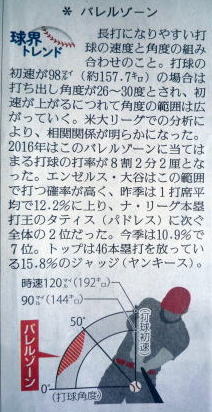 * バレルゾーン
球界トレンド
長打になりやすい打
球の速度と角度の組み
合わせのこと。打球の
初速が98㍄(約157.7㌔)の場合は
打ち出し角度が26~30度とされ、初
速が上がるにつれて角度の範囲は広
がっていく。米大リーグでの分析に
より、相関関係が明らかになった。
2016年はこのバレルゾーンに当ては
まる打球の打率が8割2分2厘とな
った。エンゼルス・大谷はこの範囲
で打つ確率が高く、昨季は1打席平
均で12.2%に上り、ナ・リーグ本塁
打王のタティス(パドレス)に次ぐ
全体の2位だった。今季は10.9%で
7位。トップは46本塁打を放ってい
る15.8%のジャッジ(ヤンキース)。
時速120㍄(192㌔)
90㍄(144㌔)
(打球初速)
50°
バレルゾーン
0°
(打球角度)